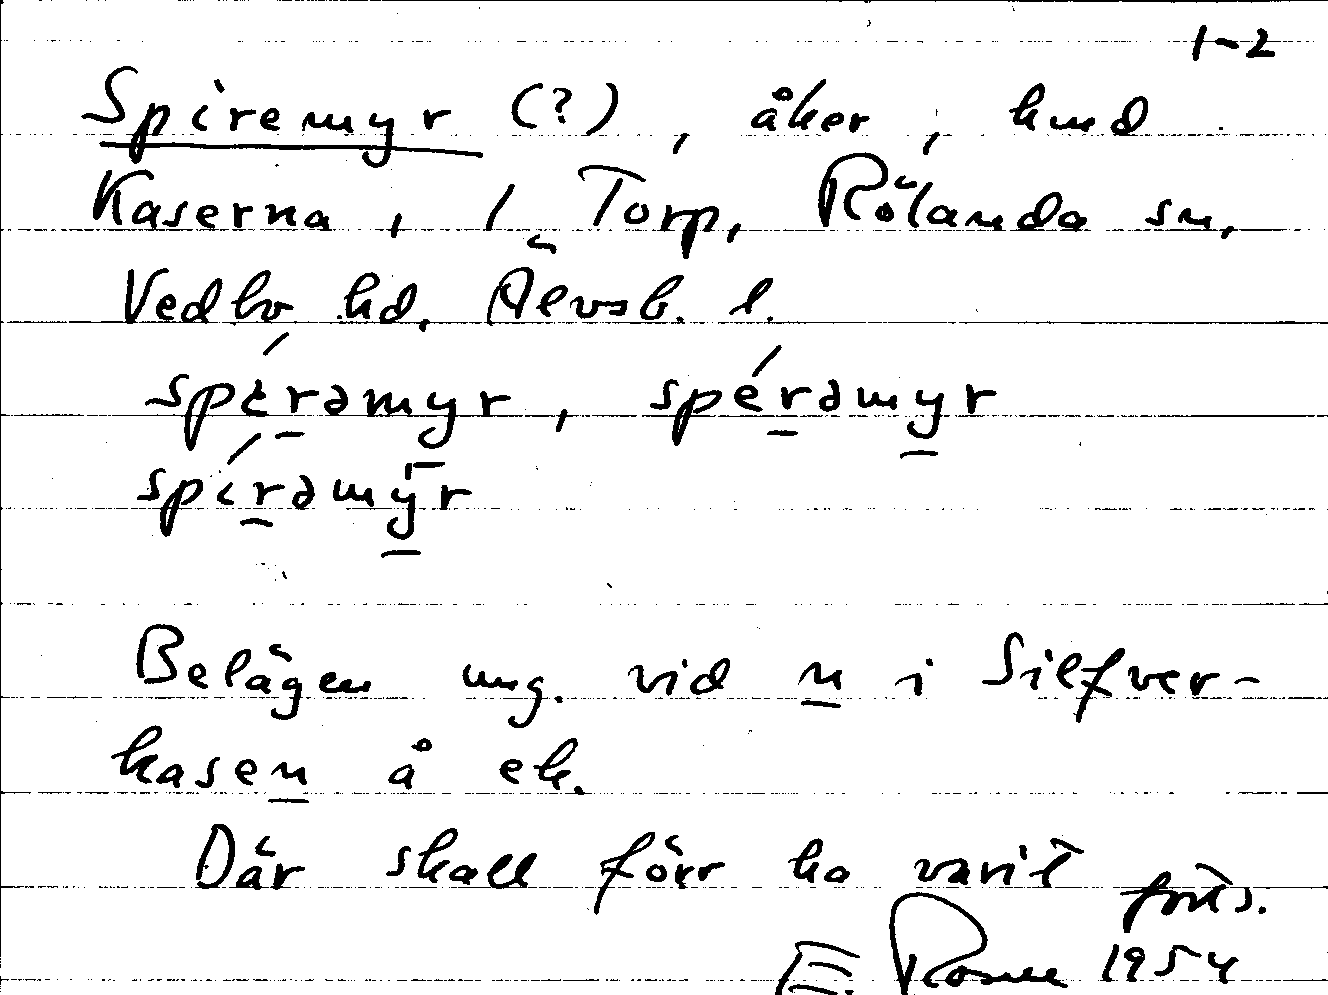 1-2
Spiremyr (?), åker, hmd
Kaserna, 1 Torp, Rölanda sn,
Vedbo hd. Älvsb. l.
spéramyr, spéramyr
spíramȳr
Belägen ung. vid n i Silfver-
kasen å ek.
Där skall förr ha varit forts.
E. Rosell 1954